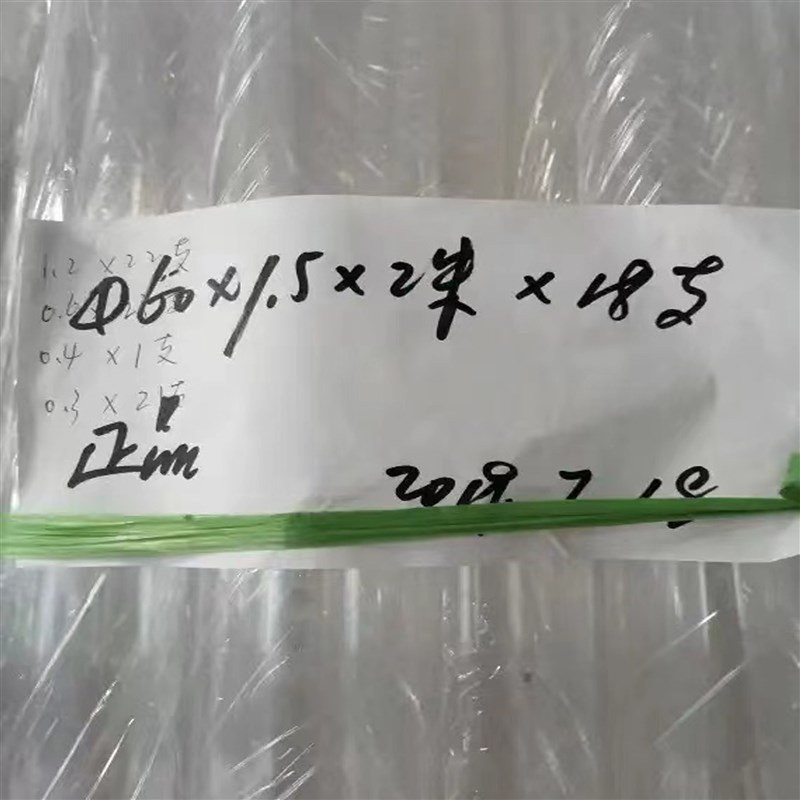 1.2 × 22支
Φ60×1.5×2米 × 18支
0.6
0.4 × 1支
0.3 × 2支
正品
2019.7.